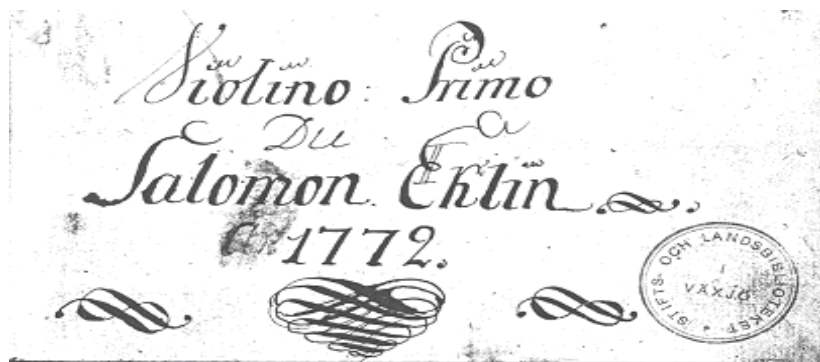 Violino: Primo
Du
Salomon. Eklin.
C. 1772.
STIFTS- OCH LANDSBIBLIOTEKET
I
VÄXJÖ